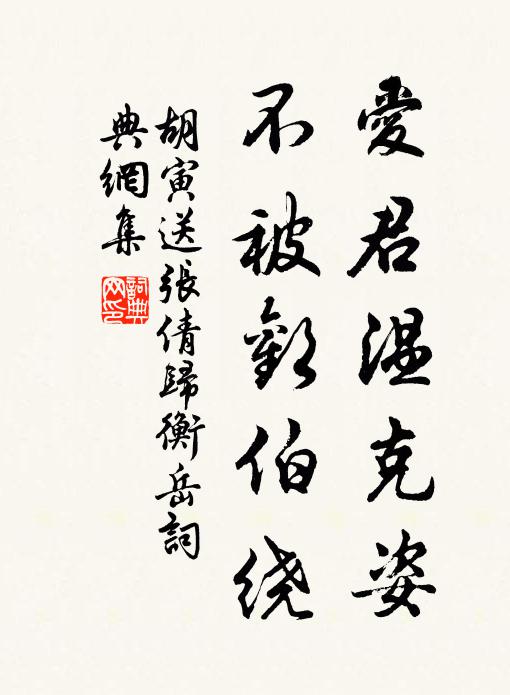 愛君温克姿
不被歡伯绕
胡寅送張倩歸衡岳詞
典網集
詞典
网印